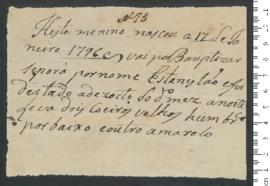 N 75
Heste menino nasceu a 12 de Ja
neiro 1796 e vai por Bauptizar
seporá por nome Estanisláo e foi
deitado a dezoito do do mez a noite
leva dois coeiros velhos hum br.
por baixo e outro amarelo